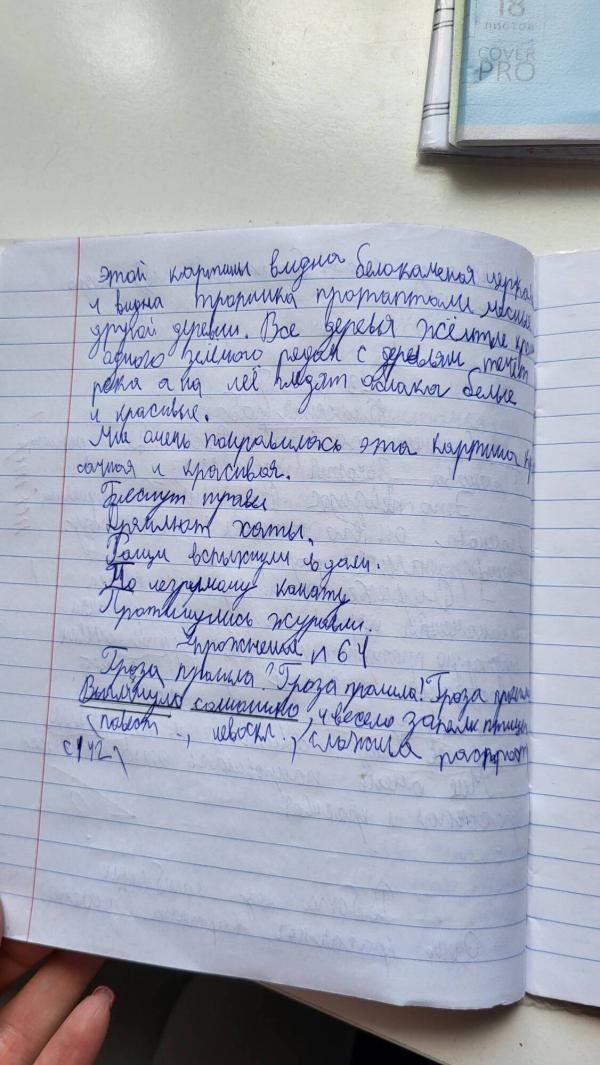 18
листов
COVER
PRO
этой картины видна белокаменая церков
и видна тропинка протаптоли
другой деревни. Все деревья жёлтые кром
одного зелёного рядом с деревям течёт
река а на ней глядят облака белые
и красивые.
Мне очень понравилась эта картина
сочная и красивая.
Блеснут травы
Дремлют хаты.
Рощи вспыхнули в дали.
По незримому канату
Протянулись журавли.
Упрожнения п 64
Гроза прошла? Гроза прошла! Гроза
Выглянуло солнышко, и весело запели птицы
(повест., невоскл., сложна распрост
с 142)